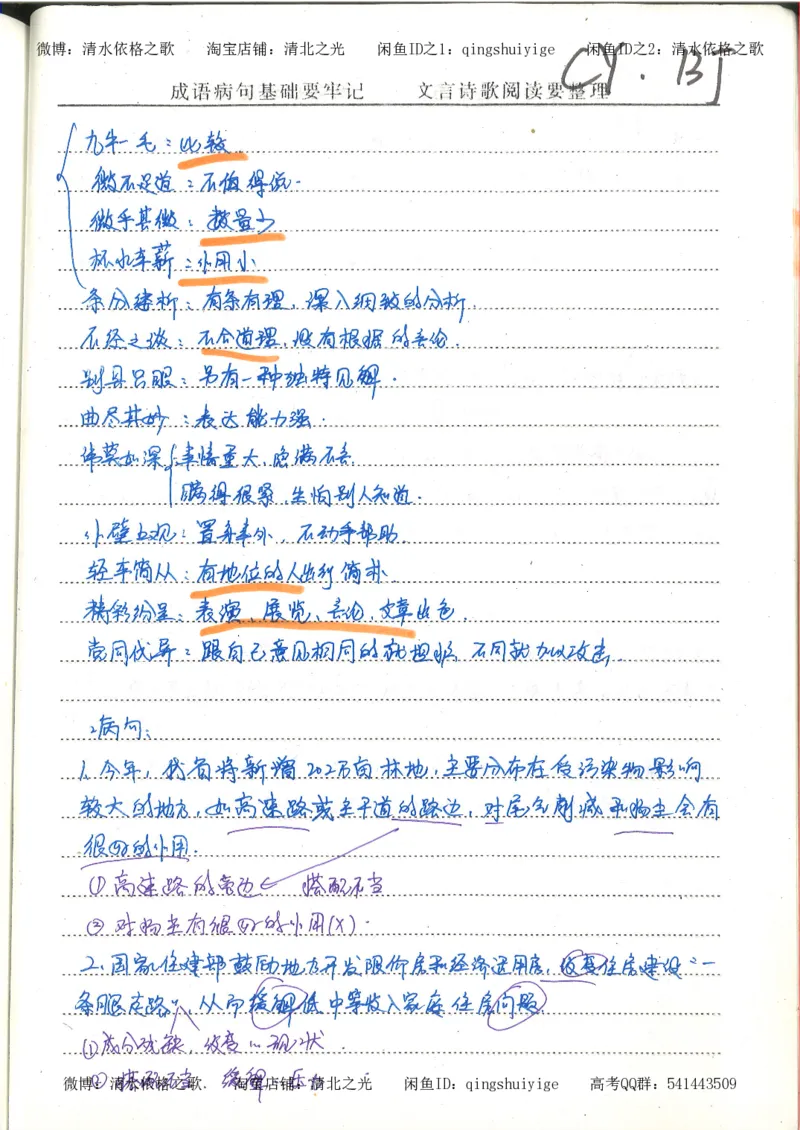 微博：清水依格之歌 淘宝店铺：清北之光 闲鱼ID之1：qingshuiyige 闲鱼ID之2：清水依格之歌
CY. BJ
成语病句基础要牢记 文言诗歌阅读要整理
九牛一毛：比较
微不足道：不值得说.
微乎其微：数量少
杯水车薪：作用小
条分缕析：有条有理，深入细致的分析.
不经之谈：不合道理，没有根据的言论.
别具只眼：另有一种独特见解.
曲尽其妙：表达能力强.
讳莫如深 事情重大，隐瞒不言.
瞒得很紧，生怕别人知道.
作壁上观：置身事外，不动手帮助
轻车简从：有地位的人出行简朴.
精彩纷呈：表演、展览、言论、文章出色.
党同伐异：跟自己意见相同的就袒护，不同就加以攻击.
病句：
1. 今年，我省将新增202万亩林地，主要分布在受污染物影响
较大的地方，如高速路或主干道的路边，对尾气削减和物尘会有
很好的作用.
① 高速路的旁边 搭配不当
② 对物尘有很好的作用(X).
2. 国家住建部鼓励地方开发限价房和经济适用房，改变住房建设“一
条腿走路”，从而缓解低中等收入家庭住房问题.
① 成分残缺，改变……现状.
② 搭配不当. 缓解 压力
微博：清水依格之歌 淘宝店铺：清北之光 闲鱼ID：qingshuiyige 高考QQ群：541443509